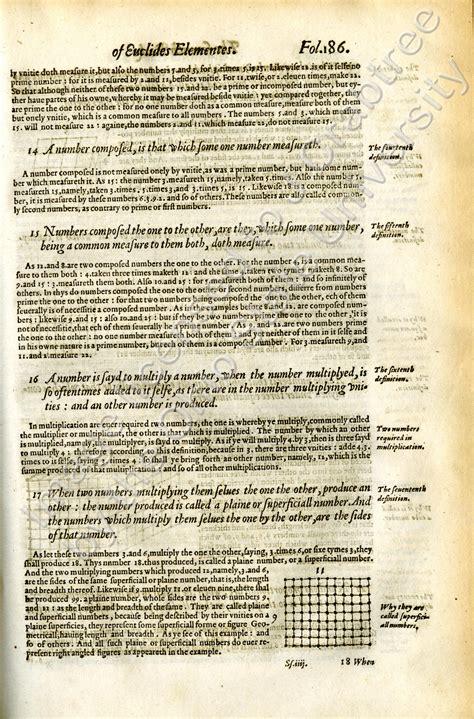 of Euclides Elementes. Fol.186.
ly vnitie doth measure it, but also the numbers 5. and 3, for 3. times 5. is 15. Likewise 22. is of it selfe no
prime number: for it is measured by 2. and 11, besides vnitie. For 11. twise, or 2. eleuen times, make 22.
So that although neither of these two numbers 15. and 22. be a prime or incomposed number, but ey-
ther haue partes of his owne, whereby it may be measured beside vnitie: yet compared together, they
are prime the one to the other: for no one number doth as a common measure, measure both of them
but onely vnitie, which is a common measure to all numbers. The numbers 5. and 3. which measure
15. will not measure 22: againe, the numbers 2. and 11. which measure 22, do not measure 15.
14 A number composed, is that which some one number measureth.
The fourtenth
definition.
A number composed is not measured onely by vnitie, as was a prime number, but hath some num-
ber which measureth it. As 15: the number 3. measureth 15, namely, taken 5. times. Also the number 5.
measureth 15, namely, taken 3. times. 5. times 3, and 3. times 5, is 15. Likewise 18. is a composed num-
ber, it is measured by these numbers 6.3.9.2. and so of others. These numbers are also called common-
ly second numbers, as contrary to prime or first numbers.
15 Numbers composed the one to the other, are they, which some one number,
being a common measure to them both, doth measure.
The fiftenth
definition.
As 12. and 8. are two composed numbers the one to the other. For the number 4. is a common mea-
sure to them both: 4. taken three times maketh 12: and the same 4. taken two tymes maketh 8. So are
9. and 15: 3. measureth them both. Also 10. and 25: for 5. measureth both of them: and so infinitely of
others. In thys do numbers composed the one to the other or second numbers, differre from numbers
prime the one to the other: for that two numbers being composed the one to the other, ech of them
seuerally is of necessitie a composed number. As in the examples before 8. and 12. are composed num-
bers: likewise 9. and 15: also 10. and 25: but if they be two numbers prime the one to the other, it is
not of necessitie, that ech of them seuerally be a prime number. As 9. and 22. are two numbers prime
the one to the other: no one number measureth both of them: and yet neither of them in it selfe and
in his owne nature is a prime number, but ech of them is a composed number. For 3. measureth 9, and
11. and 2. measure 22.
16 A number is sayd to multiply a number, when the number multiplyed, is
so oftentimes added to it selfe, as there are in the number multiplying vni-
ties: and an other number is produced.
The sixtenth
definition.
In multiplication are euer required two numbers, the one is whereby ye multiply, commonly called
the multiplier or multiplicant, the other is that which is multiplied. The number by which an other
is multiplied, namely, the multiplyer, is sayd to multiply. As if ye will multiply 4. by 3, then is three sayd
to multiply 4: therefore according to this definition, because in 3. there are three vnities: adde 4. 3.
times to it selfe, saying 3. times 4: so shall ye bring forth an other number, namely, 12, which is the
summe produced of that multiplication: and so of all other multiplications.
Two numbers
required in
multiplication.
17 When two numbers multiplying them selues the one the other, produce an
other: the number produced is called a plaine or superficiall number. And
the numbers which multiply them selues the one by the other, are the sides
of that number.
The seuententh
definition.
As let these two numbers 3. and 6, multiply the one the other, saying, 3. times 6, or sixe tymes 3, they
shall produce 18. Thys number 18. thus produced, is called a plaine number, or a superficiall number.
And the two multiplying numbers which produced 18, namely, 3. and 6,
are the sides of the same superficiall or plaine number, that is, the length
and breadth therof. Likewise if 9 multiply 11. or eleuen nine, there shal
be produced 99. a plaine number, whose sides are the two numbers 9.
and 11: as the length and breadth of the same. They are called plaine
and superficiall numbers, because being described by their vnities on a
plaine superficies, they represent some superficiall forme or figure Geo-
metricall, hauing length and breadth. As ye see of this example: and
so of others. And all such plaine or superficiall numbers do euer re-
present right angled figures as appeareth in the example.
11
9
Why they are
called superfici-
all numbers,
Sf.iiij. 18 When